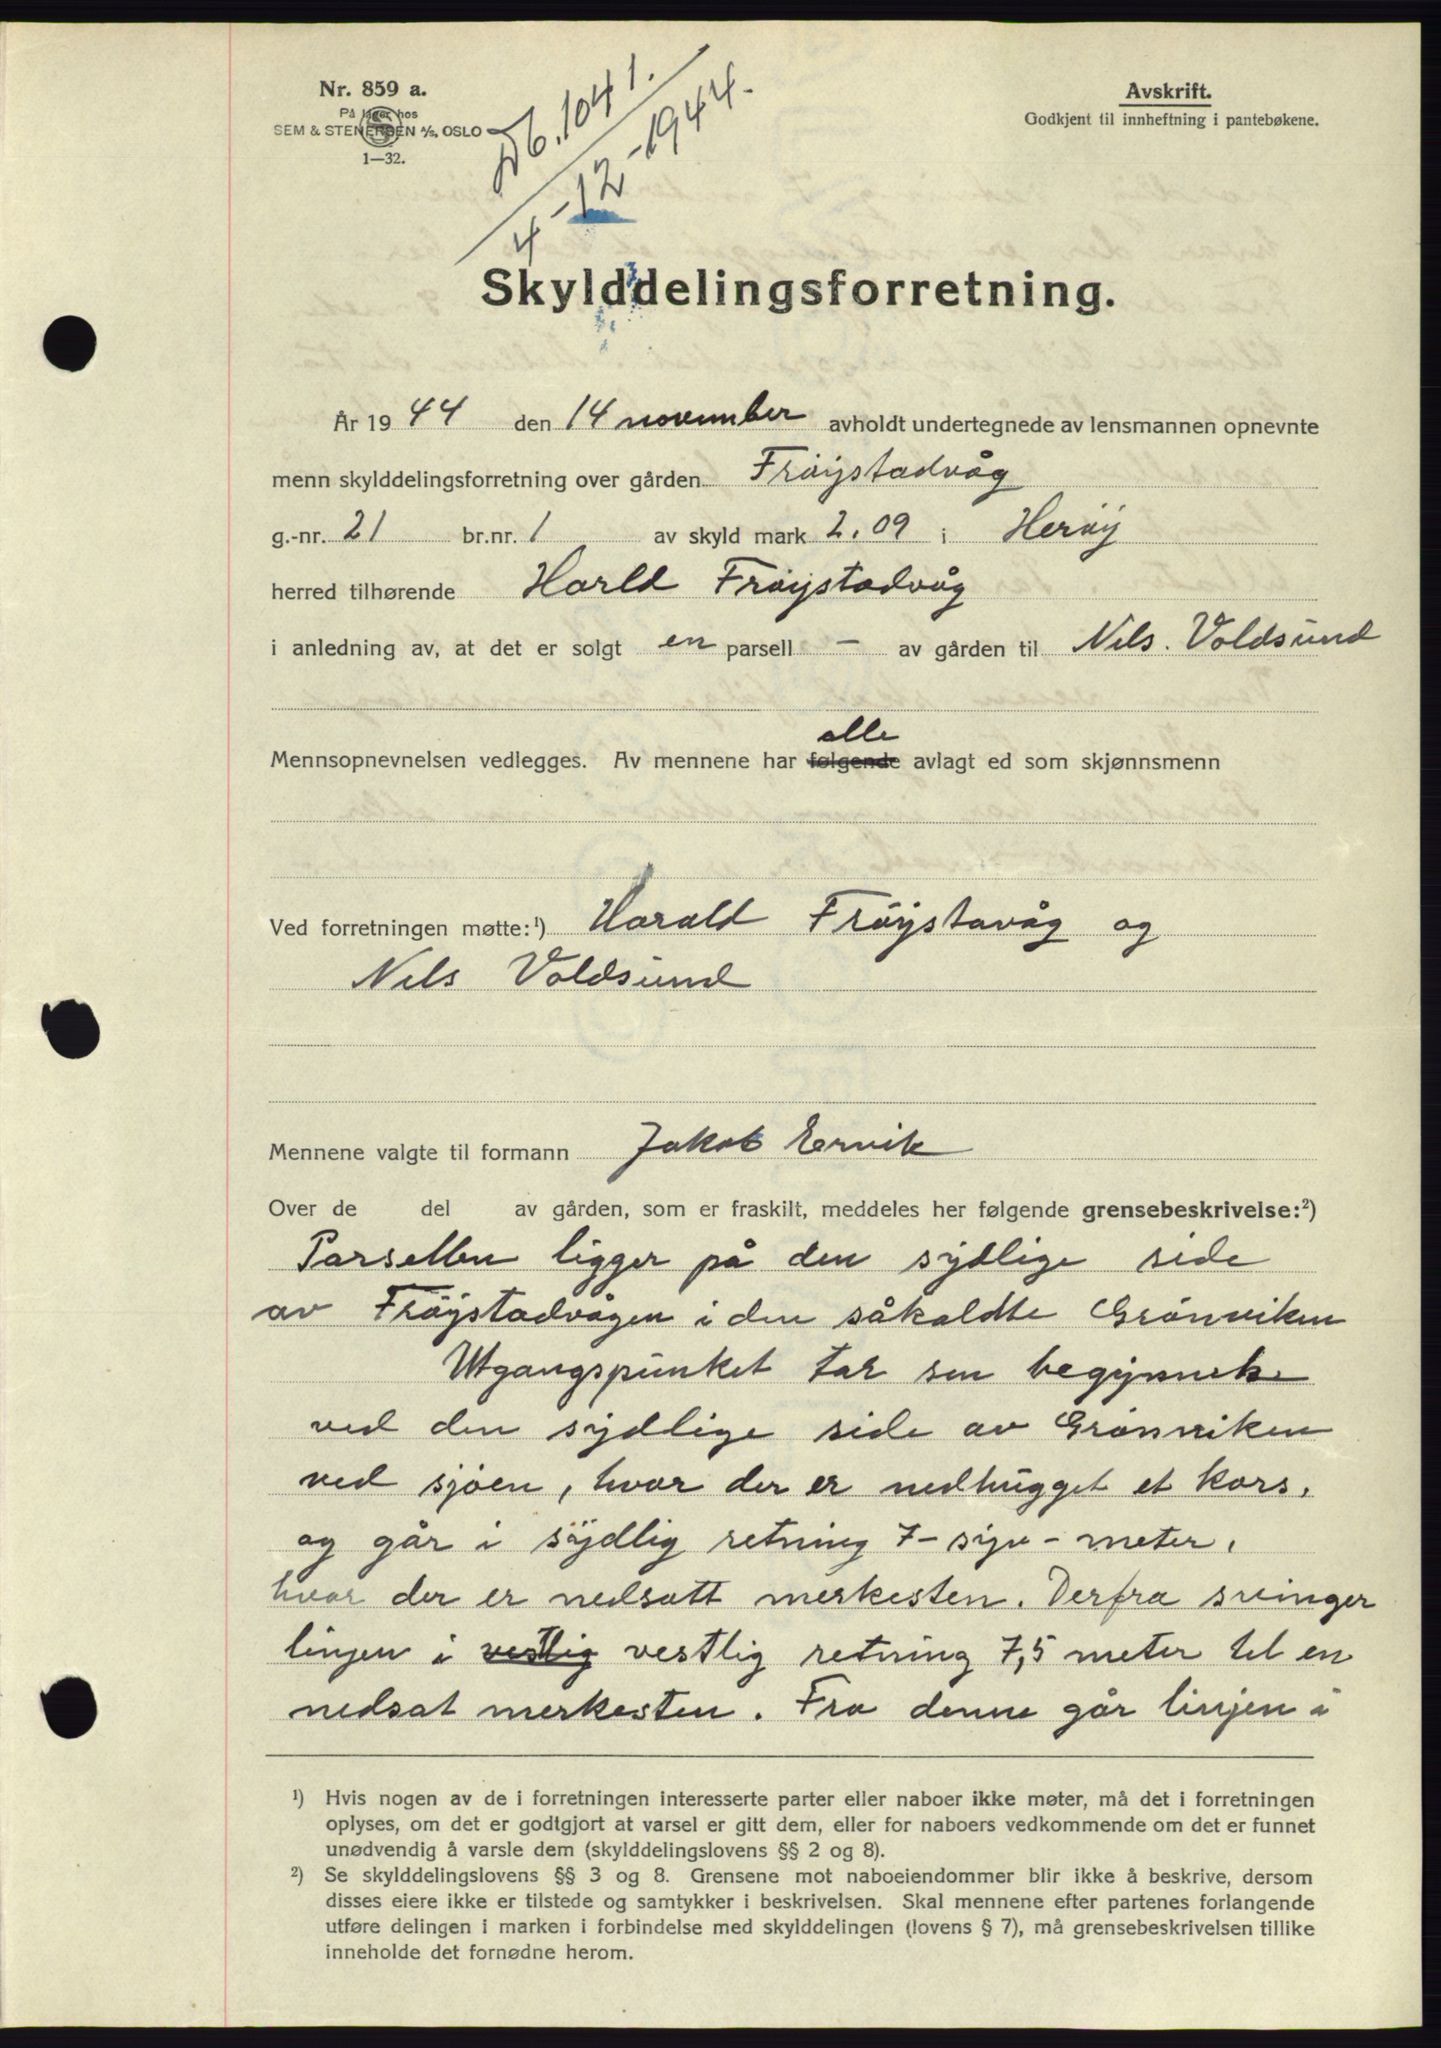 Nr. 859 a.
På lager hos
SEM & STENERSEN A/S, OSLO
1—32.
Db. 1041.
4-12-1944.
Avskrift.
Godkjent til innheftning i pantebøkene.
Skylddelingsforretning.
År 1944 den 14 november avholdt undertegnede av lensmannen opnevnte
menn skylddelingsforretning over gården Frøystadvåg
g.-nr. 21 br.nr. 1 av skyld mark 2.09 i Herøy
herred tilhørende Harld Frøystadvåg
i anledning av, at det er solgt en parsell – av gården til Nils. Voldsund
alle
Mennsopnevnelsen vedlegges. Av mennene har følgende avlagt ed som skjønnsmenn
Ved forretningen møtte:¹) Harald Frøystavåg og
Nils Voldsund
Mennene valgte til formann Jakob Ervik
Over de del av gården, som er fraskilt, meddeles her følgende grensebeskrivelse:²)
Parsellen ligger på den sydlige side
av Frøystadvågen i den såkaldte Grønviken
Utgangspunket tar sen begynnelse
ved den sydlige side av Grønnviken
ved sjøen, hvor der er nedhugget et kors,
og går i sydlig retning 7- syv - meter,
hvor der er nedsatt merkesten. Derfra svinger
linjen i vestlig vestlig retning 7,5 meter til en
nedsat merkesten. Fra denne går linjen i
¹) Hvis nogen av de i forretningen interesserte parter eller naboer ikke møter, må det i forretningen
oplyses, om det er godtgjort at varsel er gitt dem, eller for naboers vedkommende om det er funnet
unødvendig å varsle dem (skylddelingslovens §§ 2 og 8).
²) Se skylddelingslovens §§ 3 og 8. Grensene mot naboeiendommer blir ikke å beskrive, dersom
disses eiere ikke er tilstede og samtykker i beskrivelsen. Skal mennene efter partenes forlangende
utføre delingen i marken i forbindelse med skylddelingen (lovens § 7), må grensebeskrivelsen tillike
inneholde det fornødne herom.